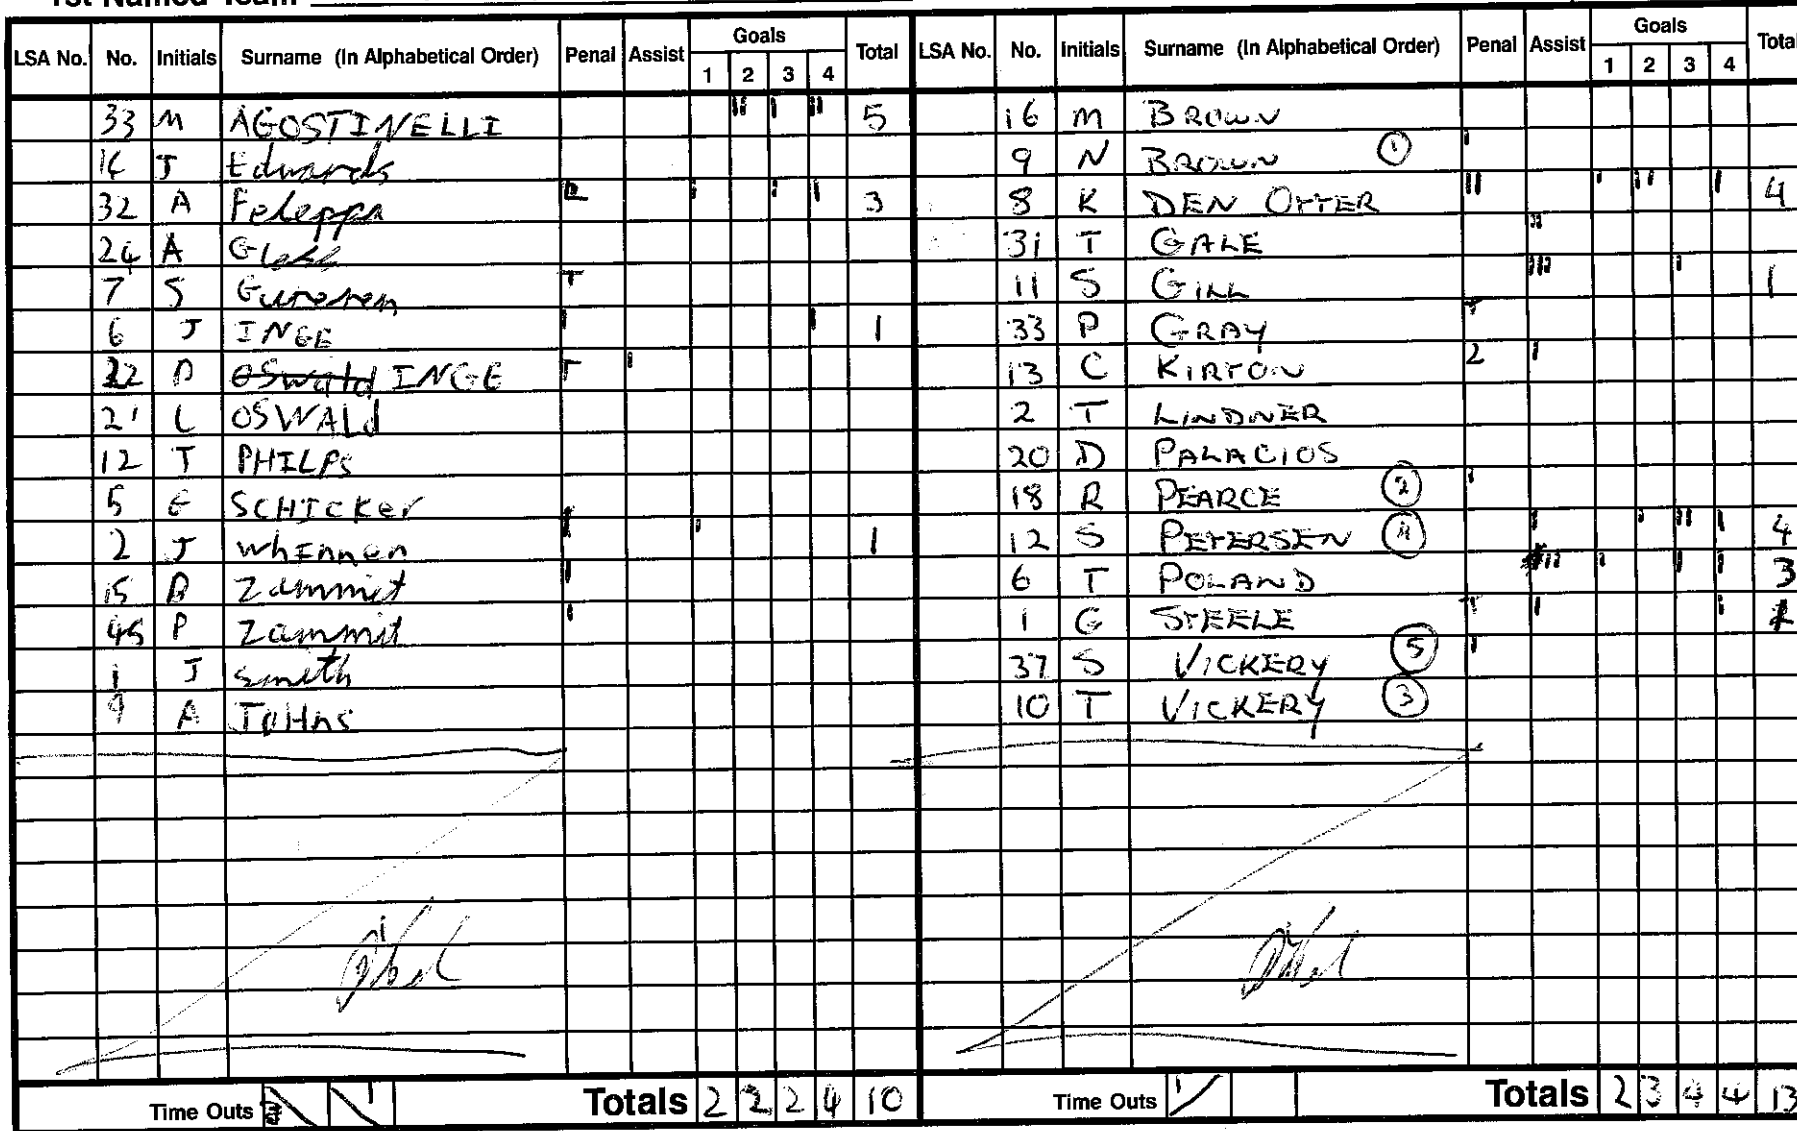 1st Named Team
LSA No. No. Initials Surname (In Alphabetical Order) Penal Assist Goals 1 2 3 4 Total
33 M AGOSTINELLI 5
J Edwards
32 A Feleppa 2 3
24 A
7 S T
6 J INGE 1
22 D OSwald INGE T
21 L OSWALd
12 T PHILPS
5 E SCHICKEr
2 J whEnnen 1
15 D Zammit
45 P Zammit
1 J Smith
9 A JOHns
Time Outs Totals 2 2 2 4 10
LSA No. No. Initials Surname (In Alphabetical Order) Penal Assist Goals 1 2 3 4 Total
16 M BROWN
9 N BROWN 1
8 K DEN OTTER 4
31 T GALE
11 S GILL 1
33 P GRAY T
13 C KIRTON 2
2 T LINDNER
20 D PALACIOS
18 R PEARCE 2
12 S PETERSEN 4 4
6 T POLAND 3
1 G STEELE T 1
37 S VICKERY 5
10 T VICKERY 3
Time Outs Totals 2 3 4 4 13